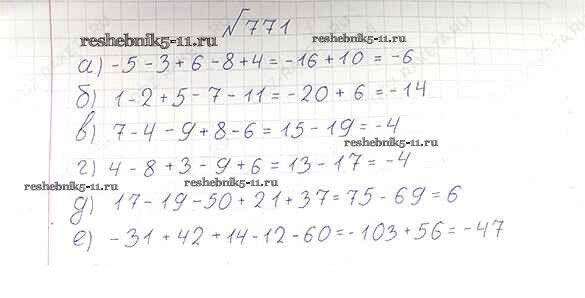 √771
reshebnik5-11.ru reshebnik5-11.ru
а) -5-3+6-8+4=-16+10=-6
б) 1-2+5-7-11=-20+6=-14
в) 7-4-9+8-6=15-19=-4
reshebnik5-11.ru
г) 4-8+3-9+6=13-17=-4
reshebnik5-11.ru reshebnik5-11.ru
д) 17-19-50+21+37=75-69=6
е) -31+42+14-12-60=-103+56=-47